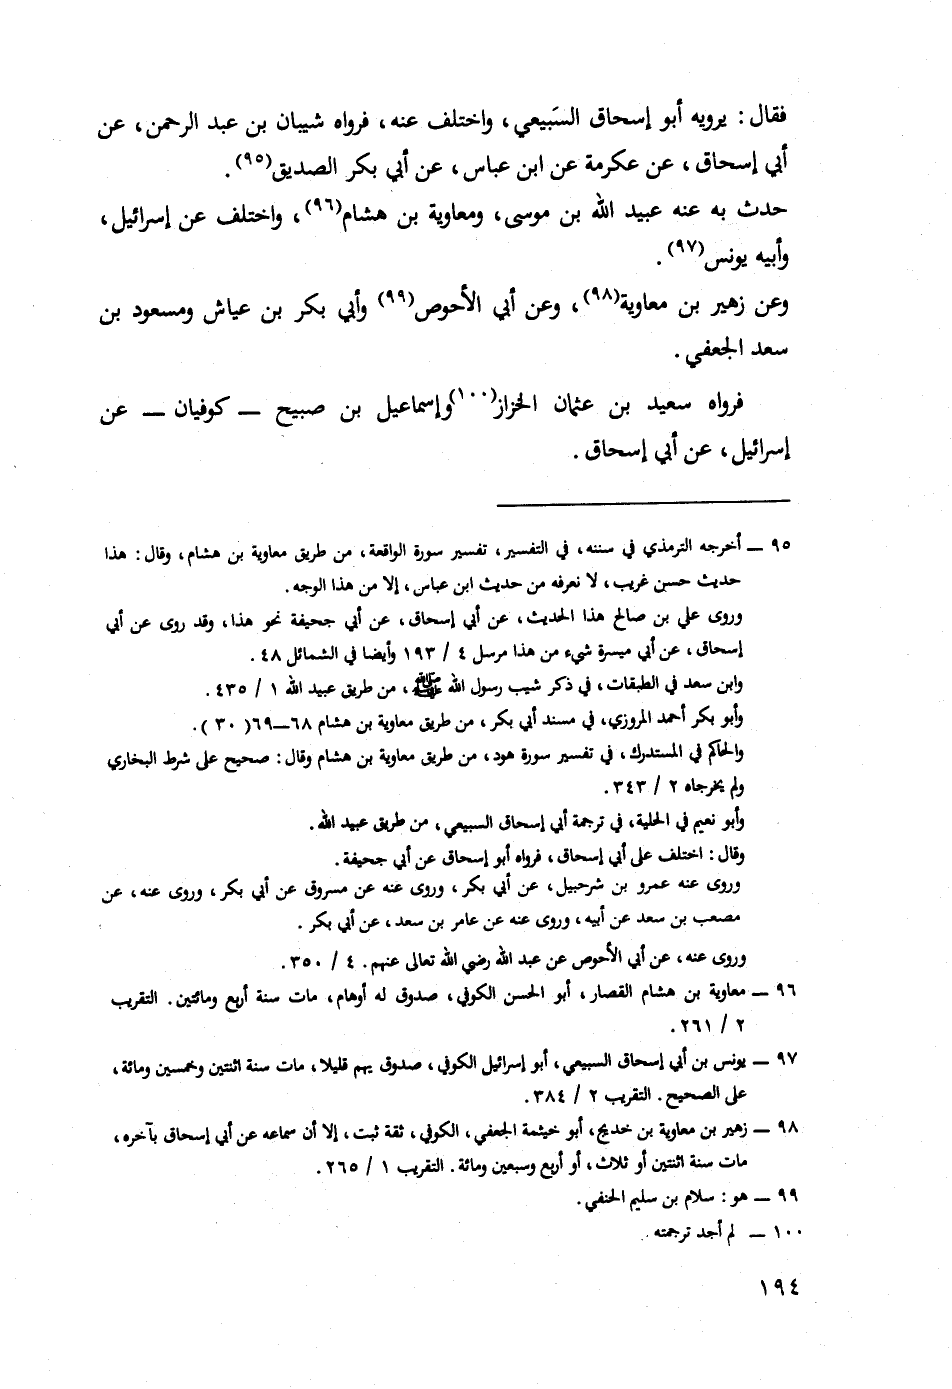 فقال : يرويه أبو إسحاق السَبيعي، واختلف عنه، فرواه شيبان بن عبد الرحمن، عن
أبي إسحاق، عن عكرمة عن ابن عباس، عن أبي بكر الصديق(٩٥).
حدث به عنه عبيد الله بن موسى، ومعاوية بن هشام(٩٦)، واختلف عن إسرائيل،
وأبيه يونس(٩٧).
وعن زهير بن معاوية(٩٨)، وعن أبي الأحوص(٩٩) وأبي بكر بن عياش ومسعود بن
سعد الجعفي.
فرواه سعيد بن عثمان الخزاز(١٠٠) وإسماعيل بن صبيح — كوفيان — عن
إسرائيل، عن أبي إسحاق.
٩٥ — أخرجه الترمذي في سننه، في التفسير، تفسير سورة الواقعة، من طريق معاوية بن هشام، وقال : هذا
حديث حسن غريب، لا نعرفه من حديث ابن عباس، إلا من هذا الوجه.
وروى علي بن صالح هذا الحديث، عن أبي إسحاق، عن أبي جحيفة نحو هذا، وقد روى عن أبي
إسحاق، عن أبي ميسرة شيء من هذا مرسل ٤ / ١٩٣ وأيضا في الشمائل ٤٨.
وابن سعد في الطبقات، في ذكر شيب رسول الله ﷺ، من طريق عبيد الله ١ / ٤٣٥.
وأبو بكر أحمد المروزي، في مسند أبي بكر، من طريق معاوية بن هشام ٦٨—٦٩( ٣٠ ).
والحاكم في المستدرك، في تفسير سورة هود، من طريق معاوية بن هشام وقال : صحيح على شرط البخاري
ولم يخرجاه ٢ / ٣٤٣.
وأبو نعيم في الحلية، في ترجمة أبي إسحاق السبيعي، من طريق عبيد الله.
وقال : اختلف على أبي إسحاق، فرواه أبو إسحاق عن أبي جحيفة.
وروى عنه عمرو بن شرحبيل، عن أبي بكر، وروى عنه عن مسروق عن أبي بكر، وروى عنه، عن
مصعب بن سعد عن أبيه، وروى عنه عن عامر بن سعد، عن أبي بكر.
وروى عنه، عن أبي الأحوص عن عبد الله رضي الله تعالى عنهم. ٤ / ٣٥٠.
٩٦ — معاوية بن هشام القصار، أبو الحسن الكوفي، صدوق له أوهام، مات سنة أربع ومائتين. التقريب
٢ / ٢٦١.
٩٧ — يونس بن أبي إسحاق السبيعي، أبو إسرائيل الكوفي، صدوق يهم قليلا، مات سنة اثنتين وخمسين ومائة،
على الصحيح. التقريب ٢ / ٣٨٤.
٩٨ — زهير بن معاوية بن خديج، أبو خيثمة الجعفي، الكوفي، ثقة ثبت، إلا أن سماعه عن أبي إسحاق بآخره،
مات سنة اثنتين أو ثلاث، أو أربع وسبعين ومائة. التقريب ١ / ٢٦٥.
٩٩ — هو : سلام بن سليم الحنفي.
١٠٠ — لم أجد ترجمته.
١٩٤